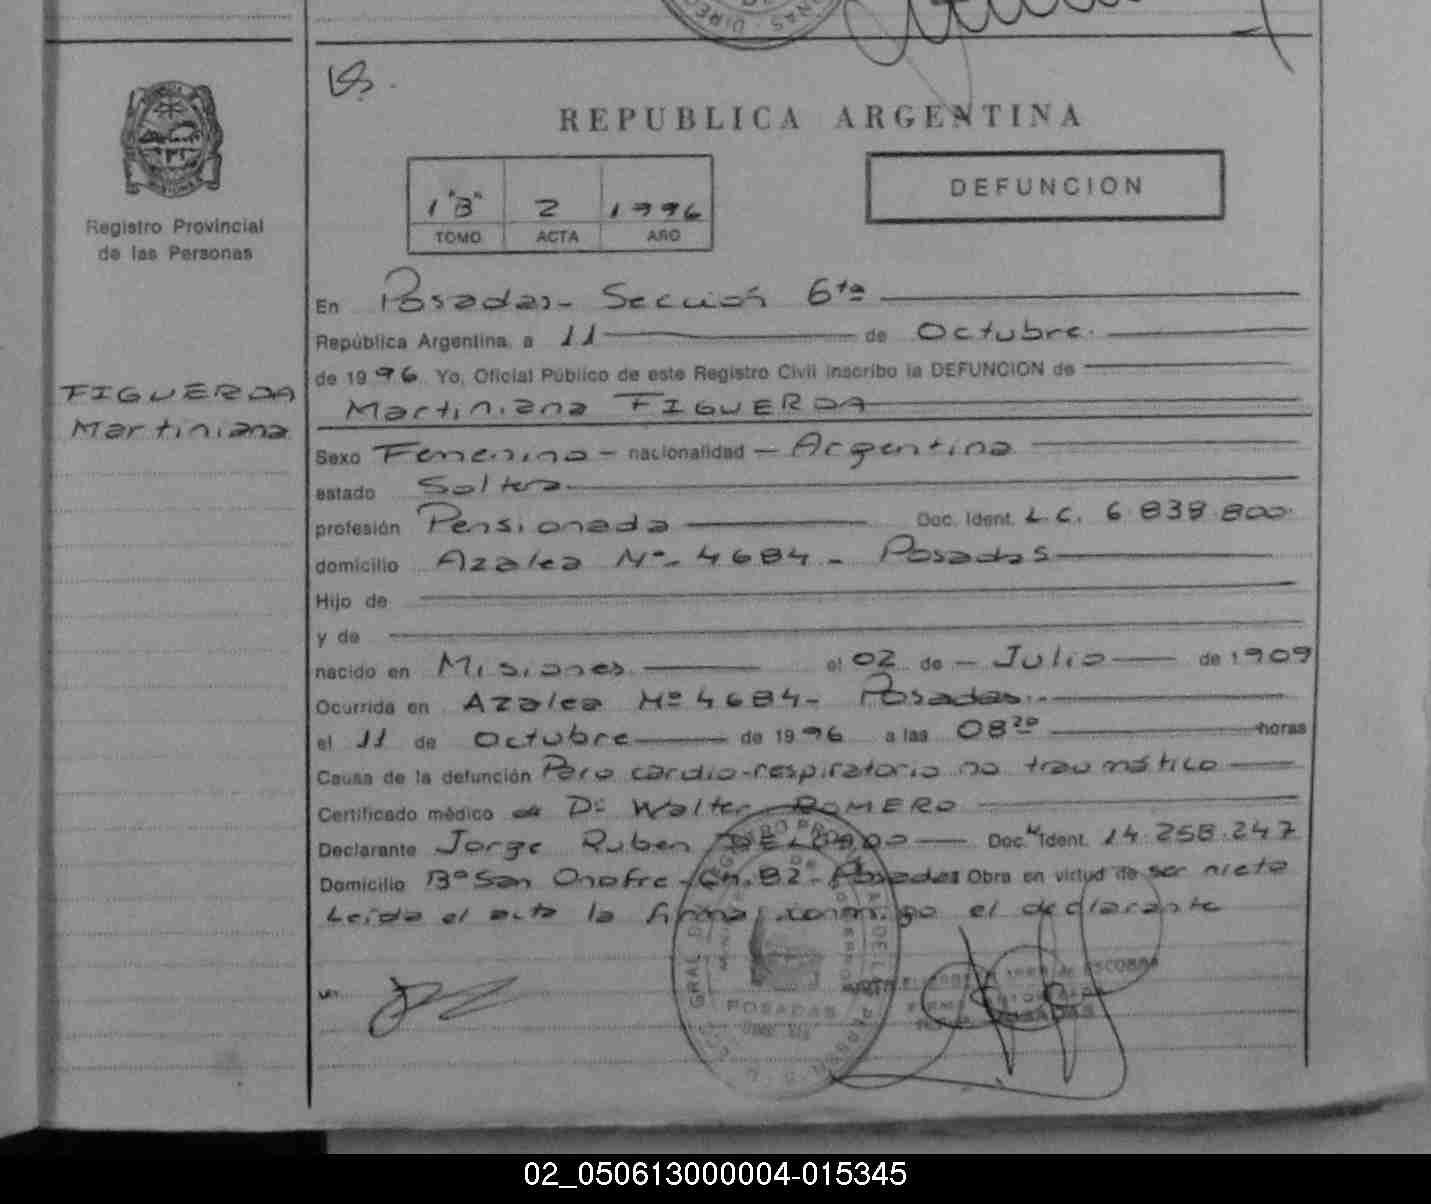 REPUBLICA ARGENTINA
1 "B" 2 1996
TOMO ACTA AÑO
DEFUNCION
Registro Provincial
de las Personas
FIGUEROA
Martiniana
En Posadas- Sección 6ta
República Argentina, a 11 de Octubre.
de 1996. Yo, Oficial Público de este Registro Civil inscribo la DEFUNCION de
Martiniana FIGUEROA
Sexo Femenino - nacionalidad - Argentina
estado Soltera
profesión Pensionada Doc. Ident. L.C. 6.838.800.
domicilio Azalea Nº- 4684 - Posadas
Hijo de
y de
nacido en Misiones. el 02 de - Julio de 1909
Ocurrida en Azalea Nº 4684- Posadas.-
el 11 de Octubre de 1996 a las 08 20 horas
Causa de la defunción Paro cardio-respiratorio no traumático
Certificado médico Dr Walter ROMERO
Declarante Jorge Ruben Doc. Ident. 14.258.247
Domicilio Bº San Onofre - Ch. 82 - Posadas Obra en virtud de ser nieto
Leída el acta la firma conmigo el declarante
POSADAS
ESCOBAR
POSADAS
02_050613000004-015345